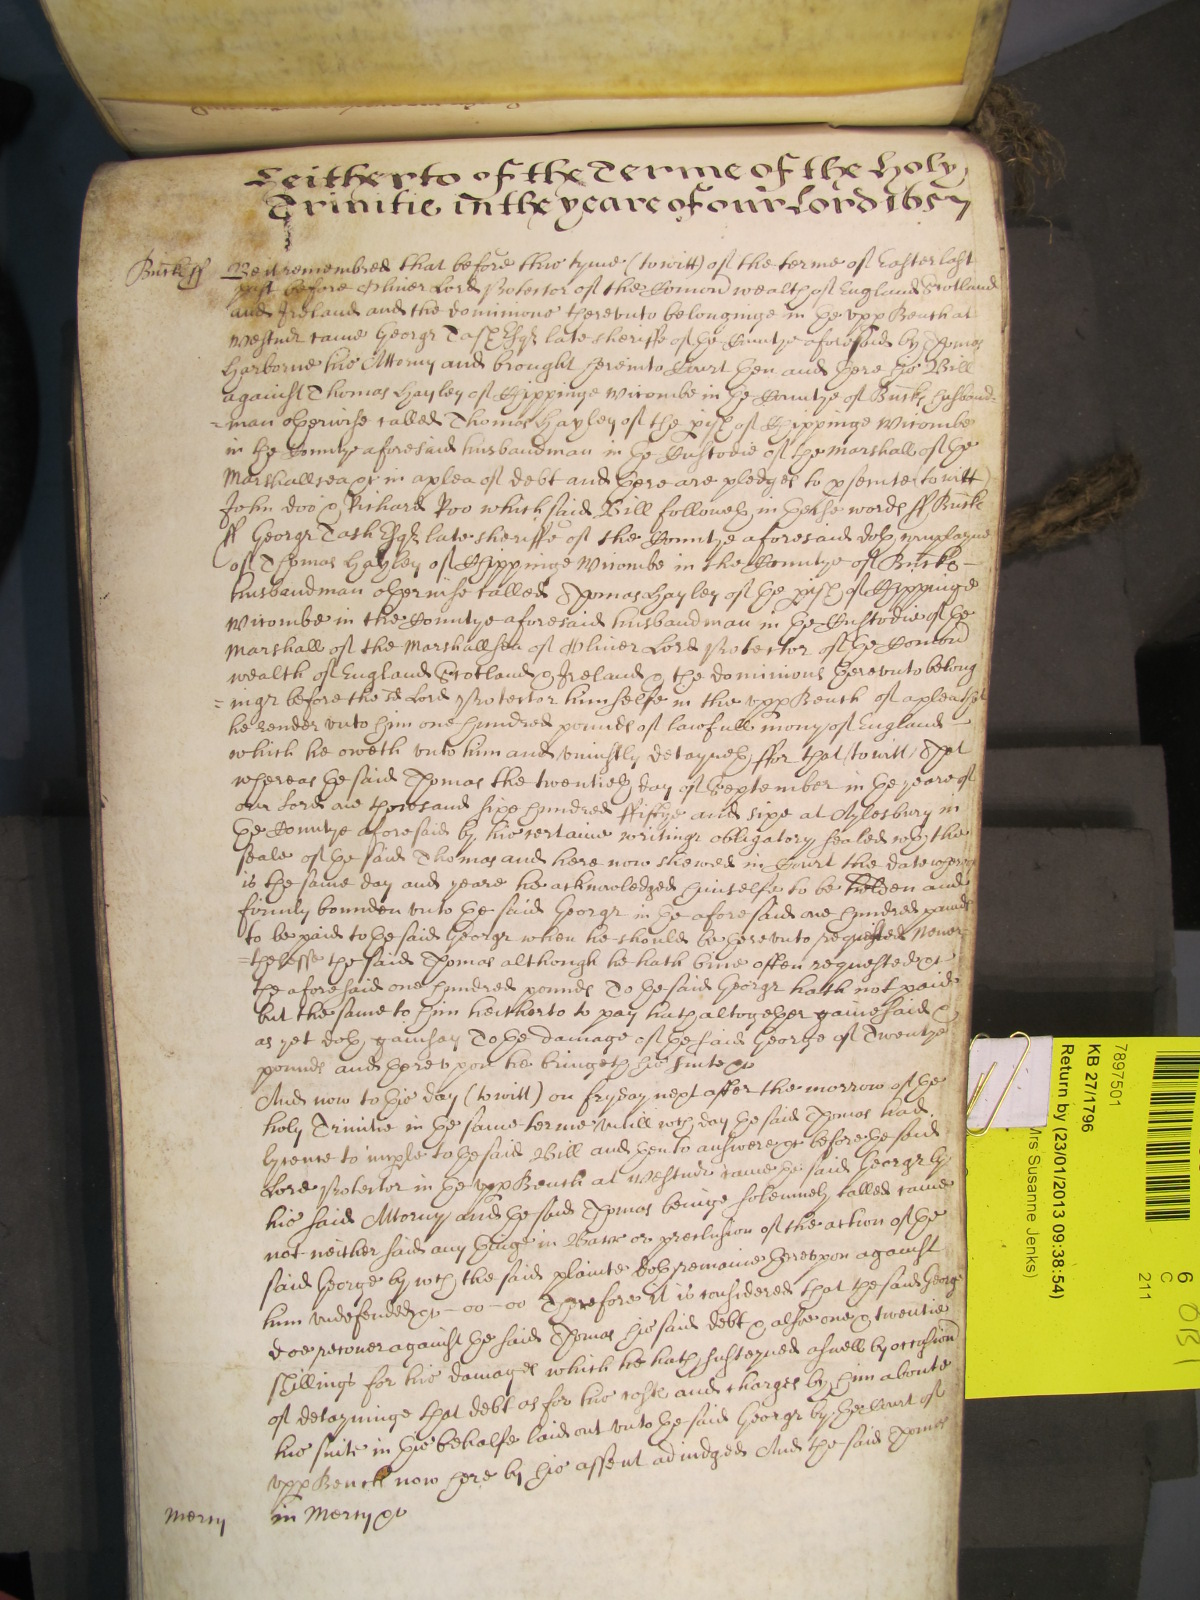 Heitherto of the Terme of the Holy
Trinitie in the yeare of our Lord 1657
Buck ss Be it remembred that before this tyme (to witt) of the terme of Easter last
past before Oliver Lord Protector of the Comon wealth of England Scotland
and Ireland and the dominions thereunto belonginge in the upp Bench at
Westmr came George Tash Esqr late sheriffe of the Countye aforesaid by Thomas
Harborne his Attorny and brought here into Court then and there his Bill
against Thomas Hayley of Chippinge Wicombe in the Countye of Buck husband=
=man otherwise called Thomas Hayley of the pish of Chippinge Wicombe
in the Countye aforesaid husbandman in the Custodie of the Marshall of the
Marshallsea &c in a plea of debt and there are pledges to psecute to witt
John Doo & Richard Roo which said Bill followeth in these words ss Buck
ss George Tash Esqr late sheriffe of the Countye aforesaid doth complayne
of Thomas Hayley of Chippinge Wicombe in the Countye of Bucks
husbandman otherwise called Thomas Hayley of the pish of Chippinge
Wicombe in the Countye aforesaid husbandman in the Custodie of the
Marshall of the Marshallsea of Oliver Lord Protector of the Comon
wealth of England Scotland & Ireland & the dominions thereunto belong
=inge before the sd Lord Protector himselfe in the upp Bench of a plea that
he render unto him one hundred pounds of lawfull mony of England
which he oweth unto him and uniustly detayneth ffor that (to witt) That
whereas the said Thomas the twentieth day of September in the yeare of
our Lord one thousand sixe hundred ffiftye and sixe at Aylesbury in
the Countye aforesaid by his certaine writinge obligatory sealed wth the
seale of the said Thomas and here now shewed in Court the date whereof
is the same day and yeare he acknowledged himselfe to be holden and
firmly bounden unto the said George in the aforesaid one hundred pounds
to be paid to the said George when he should be thereunto requested Never=
=thelesse the said Thomas although he hath bine often requested &c
the aforesaid one hundred pounds To the said George hath not paid
but the same to him heitherto to pay hath altogether gainesaid &
as yet doth gainsay To the damage of the said George of Twentye
pounds and thereupon he bringeth his suite &c
And now to this day (to witt) on fryday next after the morrow of the
holy Trinitie in the same terme untill wch day the said Thomas had
lycence to imple to the said Bill and then to answere &c before the said
Lord Protector in the upp Bench at Westmr came the said George by
his said Attorny and the said Thomas beinge solemnely called came
not neither said any thinge in Barr or preclusion of the action of the
said George by wch the said plainte doth remaine thereupon against
him undefended &c Therefore it is considered that the said George
doe recover against the said Thomas his said debt & alsoe one & twentie
shillings for his damages which he hath susteyned aswell by occasion
of detayninge that debt as for his costs and charges by him aboute
his suite in this behalfe laid out unto the said George by the Court of
upp Bench now here by his assent adiudged And the said Thomas
Mercy in Mercy &c
7897501
KB 27/1796
Return by (23/01/2013 09:38:54)
Mrs Susanne Jenks)
6
C
211